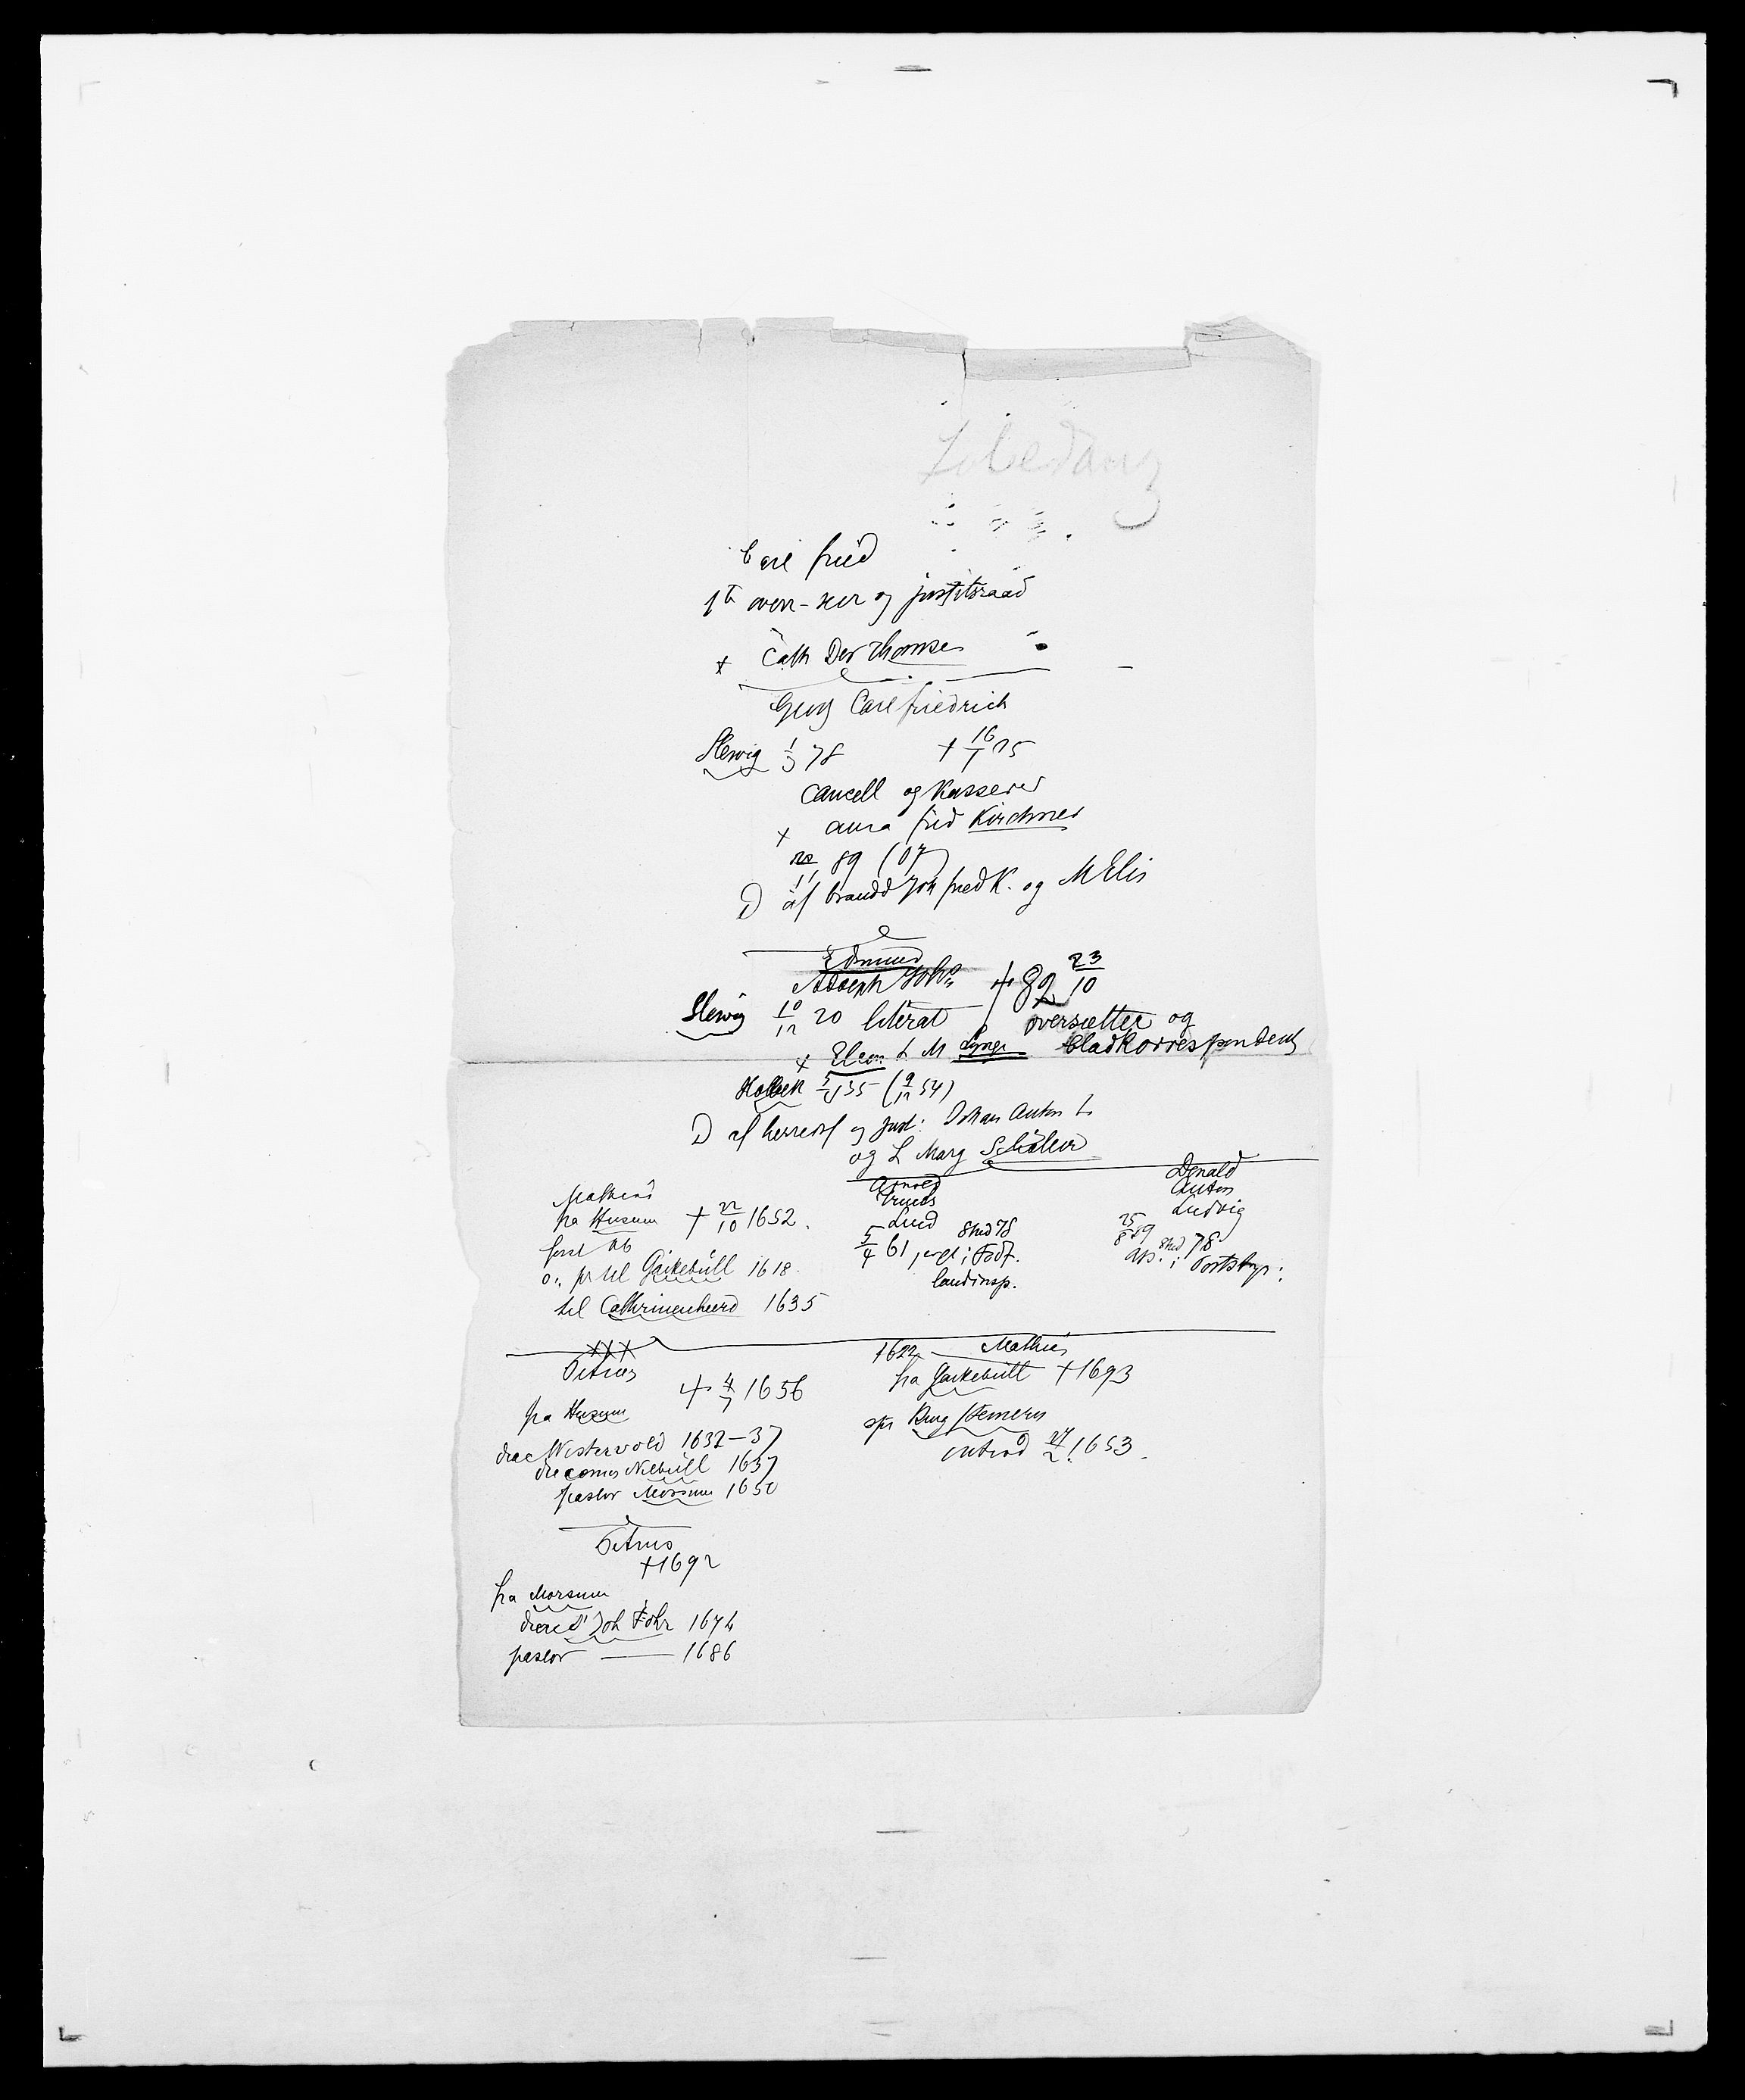 Carl fried
og justitsraad
x Cath Dor Thomsen
Georg Carl friedrich
Slesvig 1/3 78 + 16/1 15
cancell og Kasserer
x anna fred Kirchner
11 89 (07)
D af brandd Joh fred K. og M Elis
Edmund
Adolph Joh + 89 23/10
Slesvig 10/12 20 literat oversætter og
x Eleon L M Lynge bladkorrespondent
Holbek 5/5 35 (9/12 54)
D af herredsf og Just: Johan Anton L
og L Marg Schiøler
Mathias
fra Husum + 22/10 1652.
til Gaikebüll 1618.
til Cathrinenheerd 1635
Arnold
Truels
Lund
5/4 61 Stud 78
landinsp.
Donald
Anton
Ludvig
25/8 59
Stud 78
as. i Postbgr:
xxx
Petrus
+ 4/7 1656
fra Husum
diac Westerwold 1632-37
diaconus Niebüll 1637
pastor Morsum 1650
1622 Mathias
fra Gaikebüll +1693
spr Burg Stemern
introd 27/2 1653.
Petrus
+1692
fra Morsum
diac St Joh Föhr 1674
pastor — 1686